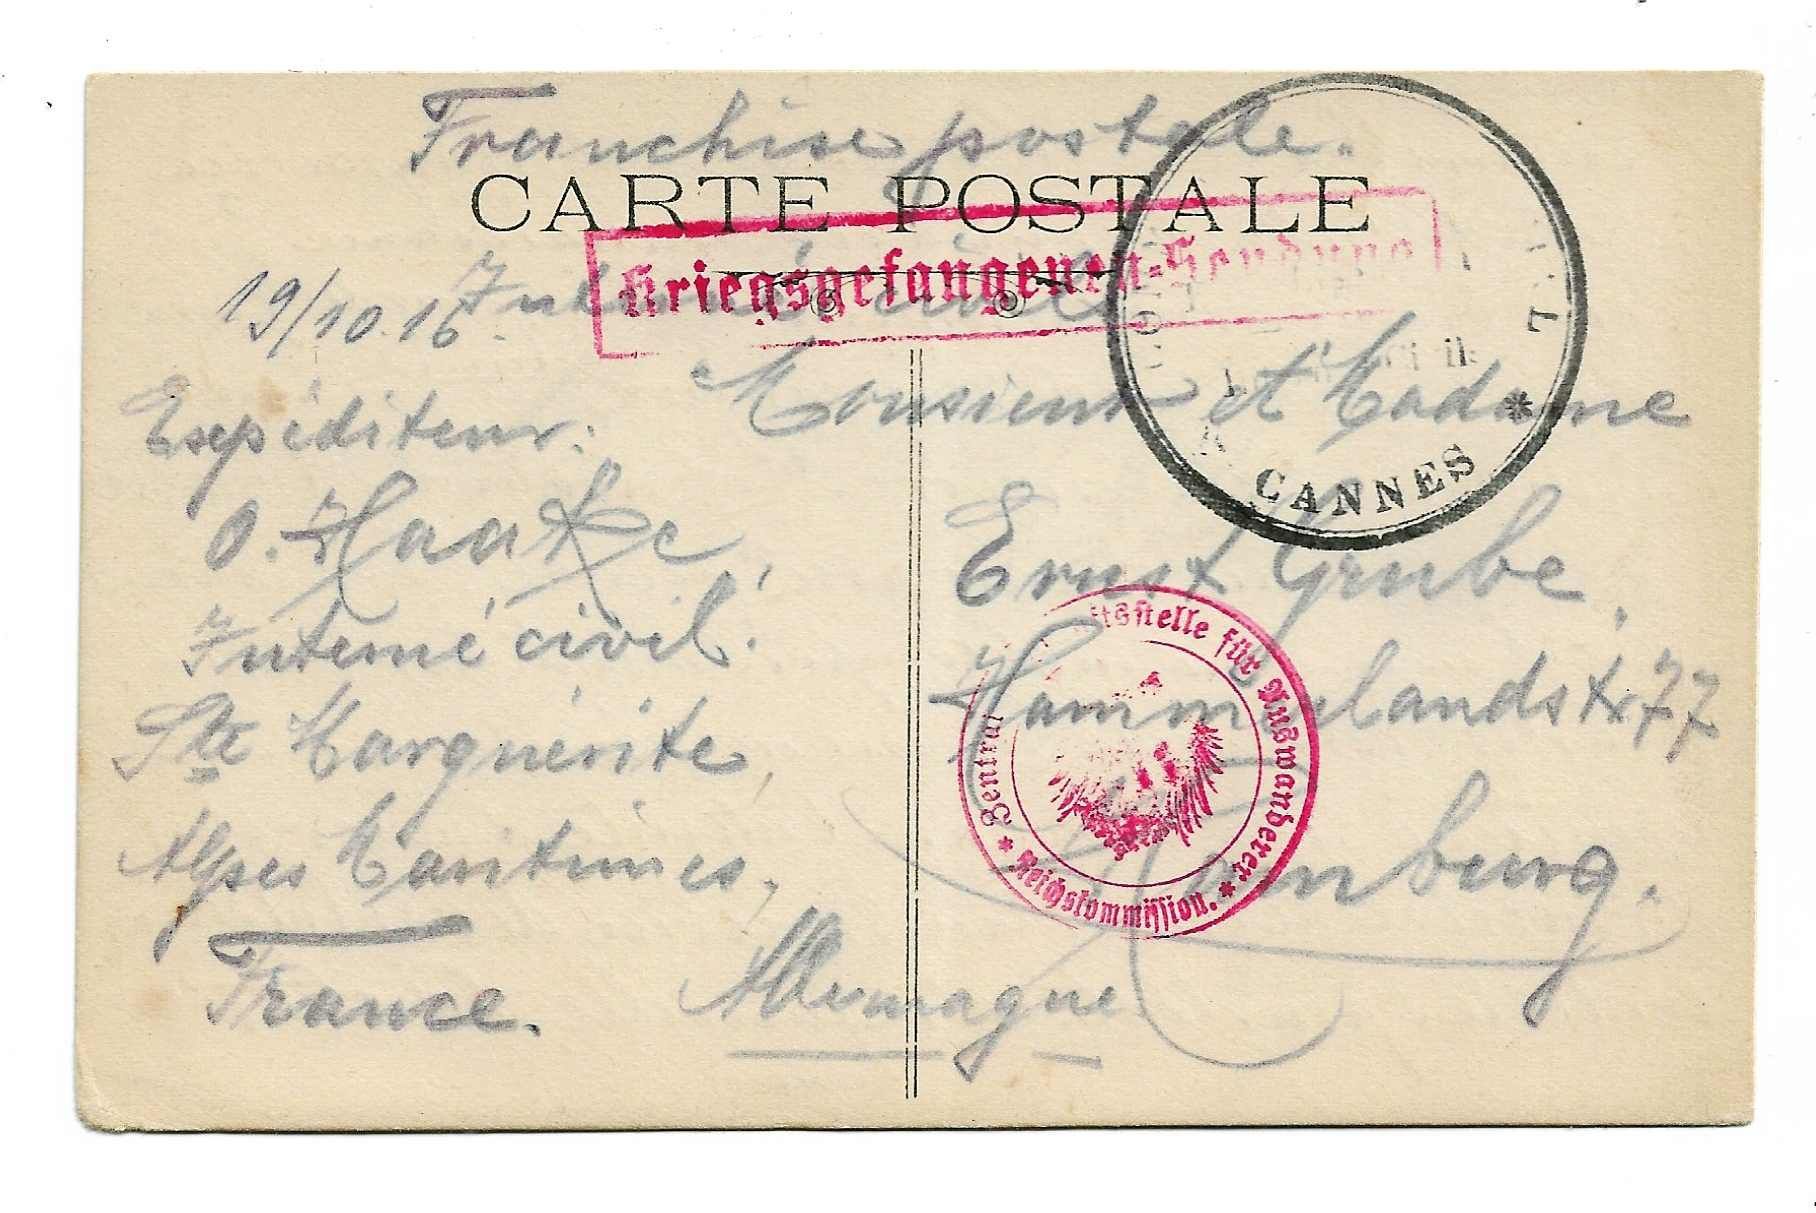 Franchise postale.
CARTE POSTALE
Kriegsgefangenen-Sendung
19/10.16. Interné civil
Expéditeur:
O. Haake,
Interné civil.
Ste Marguérite,
Alpes Maritimes,
France.
Monsieur et Madame
Ernst Grube,
Hammerlandstr 77
Hamburg.
Allemagne
CANNES
für Auswanderer
Reichskommission.